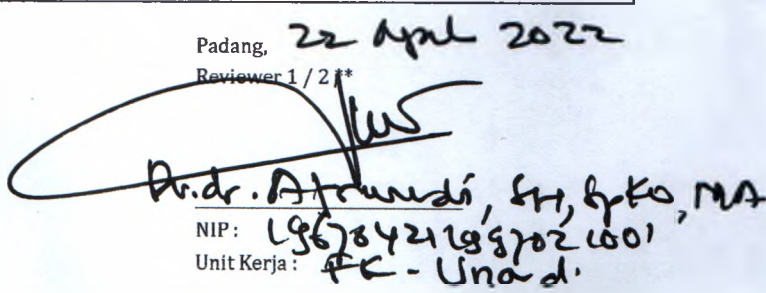 Padang, 22 April 2022
Reviewer 1 / 2 **
Dr. dr. Afriwardi, SH, SpKO, MA
NIP : 196704211997021001
Unit Kerja : FK - Unand.